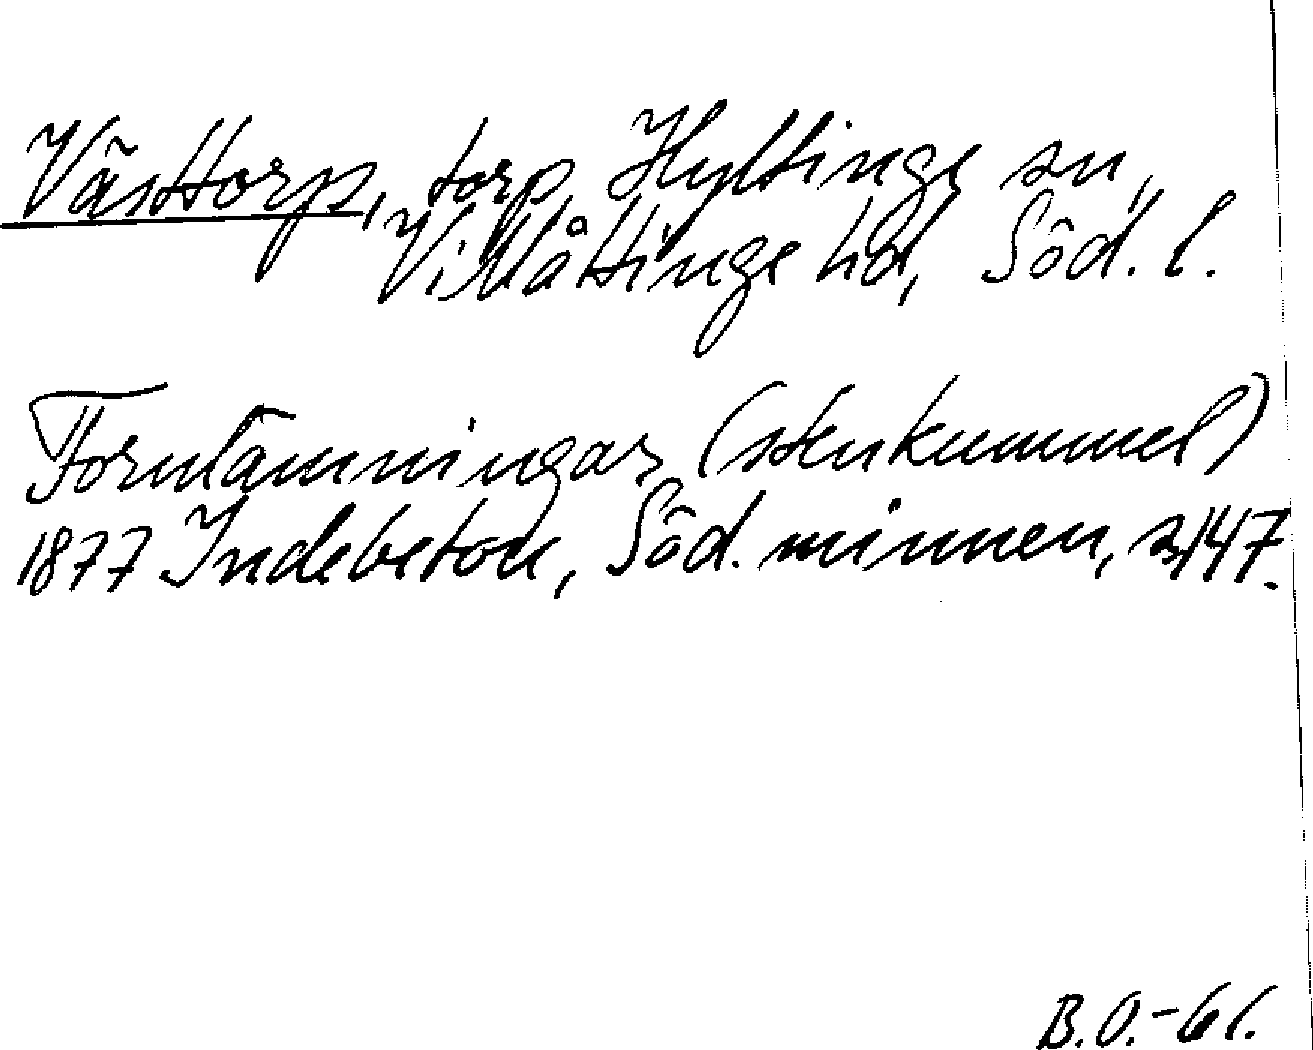 Västtorp, torp, Hyltinge sn,
Villåttinge hd, Söd. l.
Fornlämningar (stenkummel)
1877 Indebetou, Söd. minnen, s. 147.
B.O.-61.